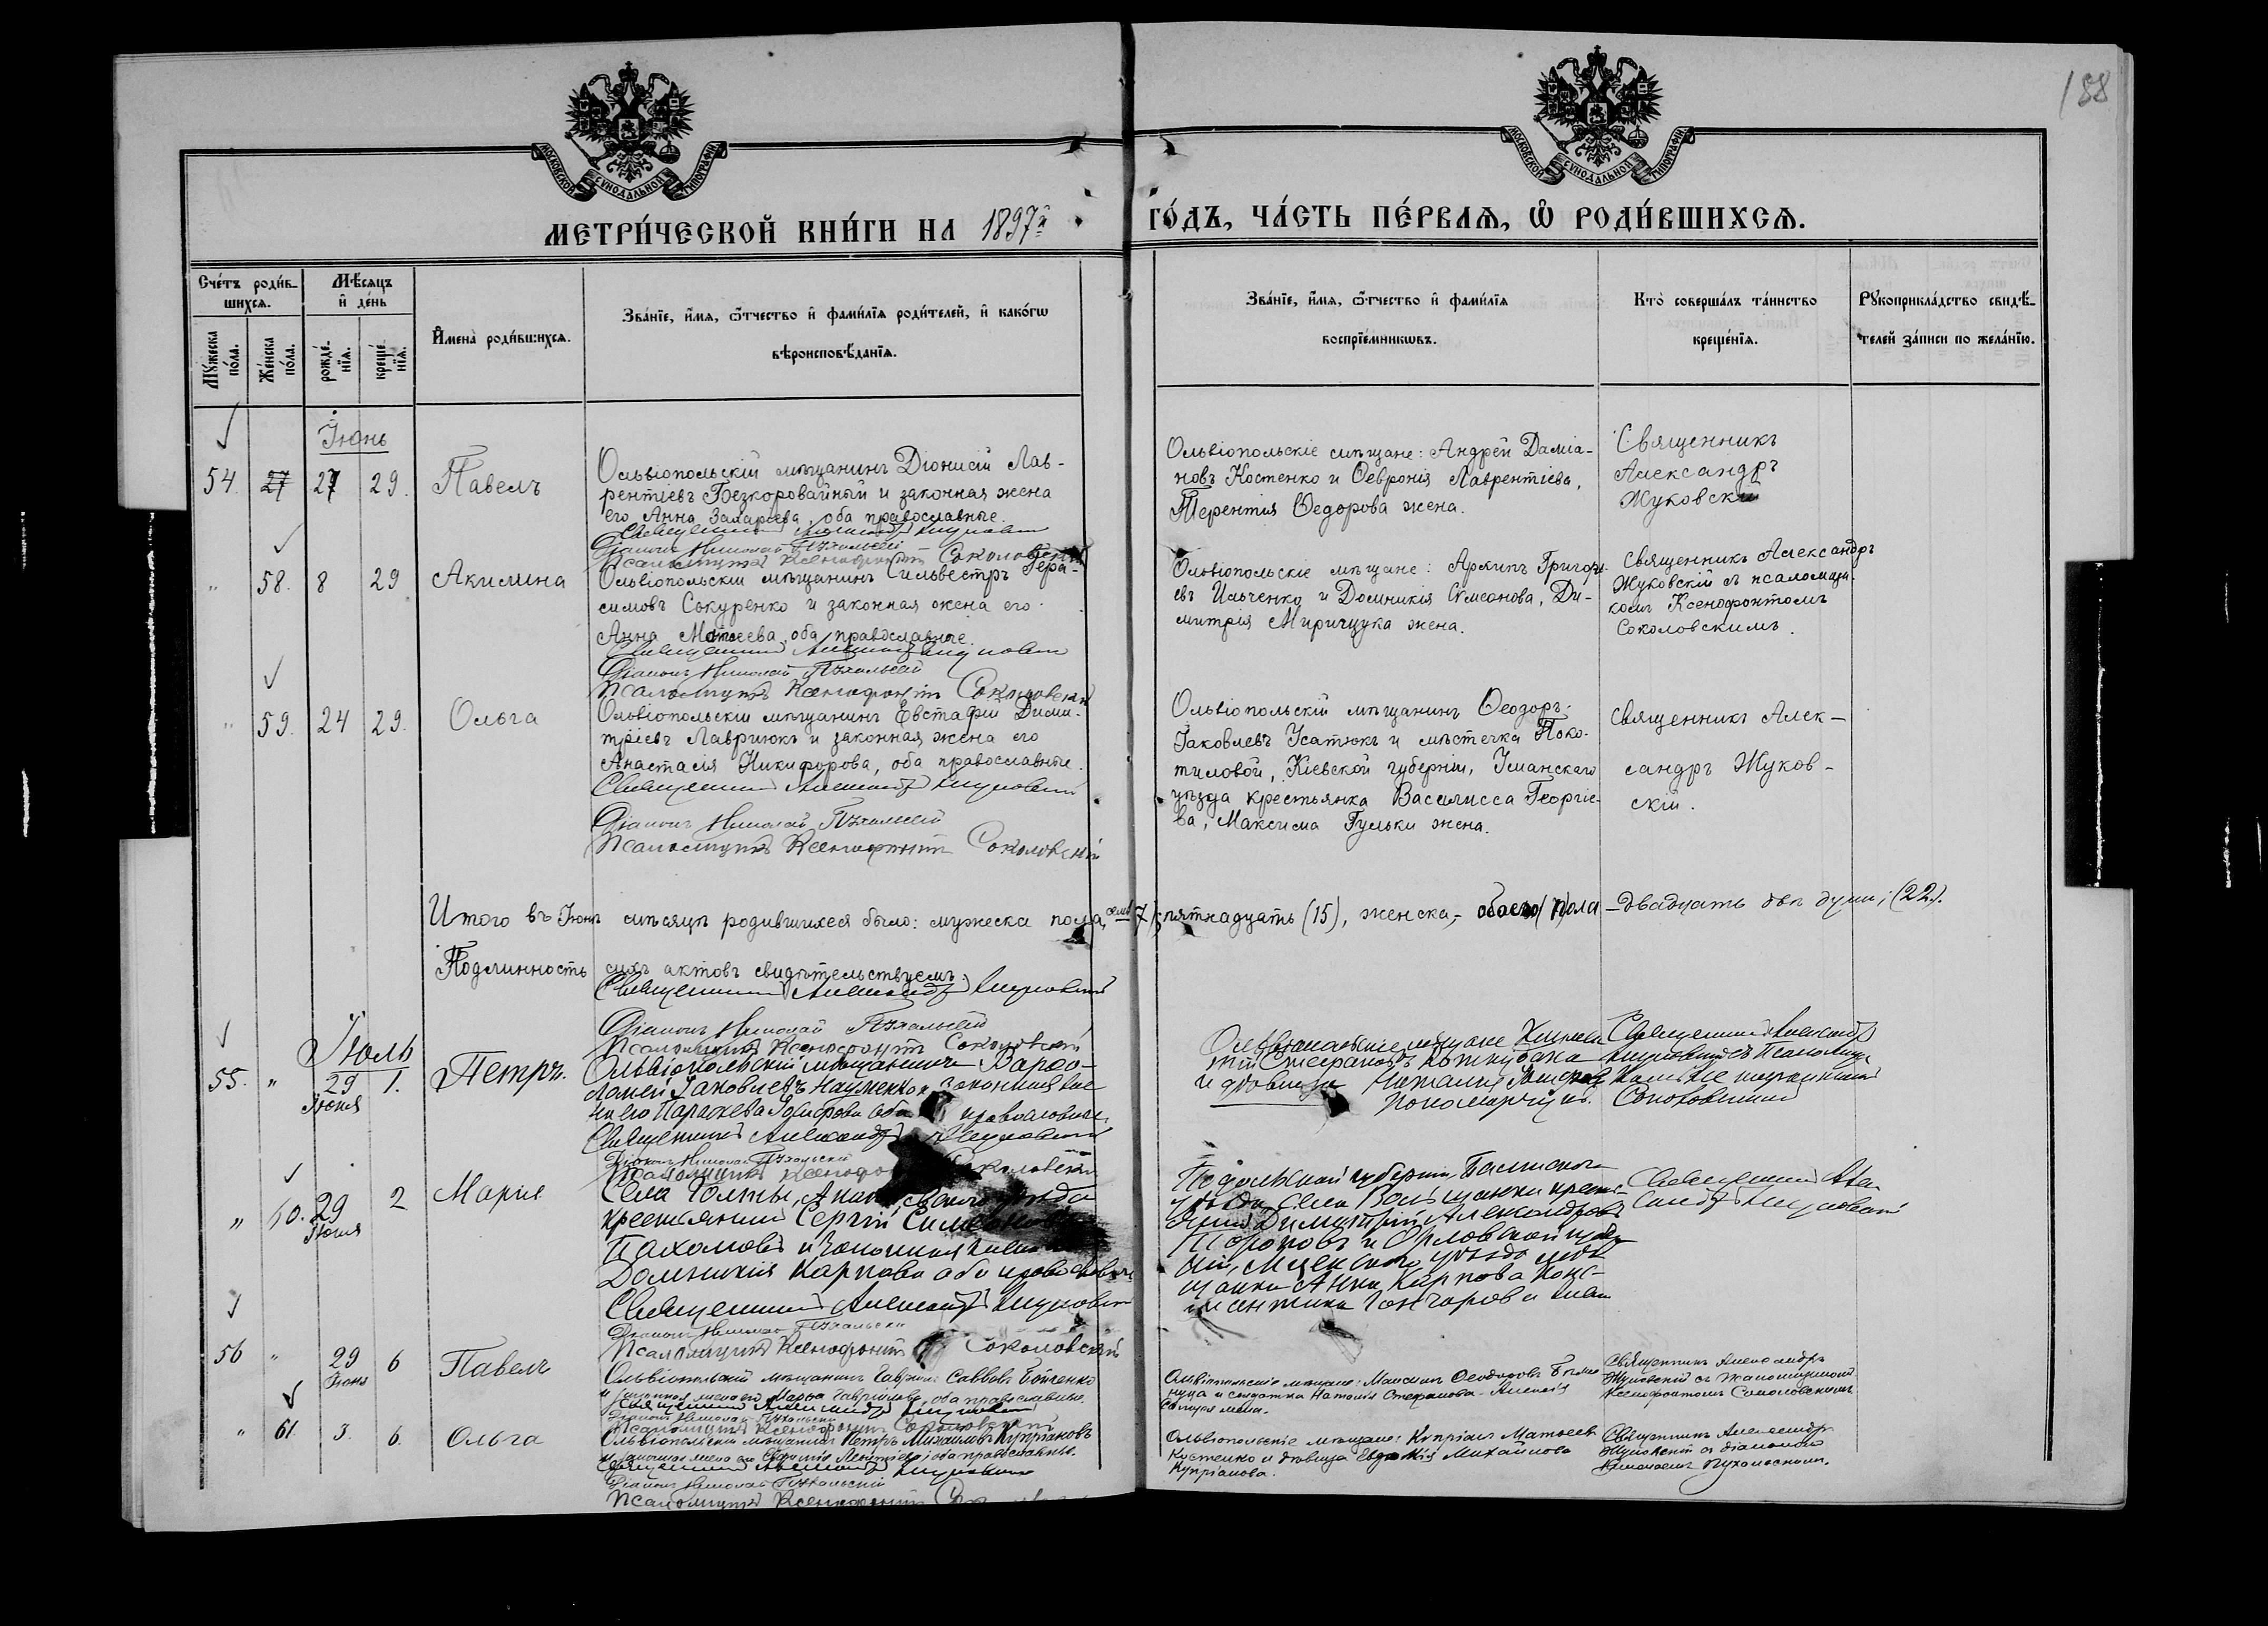 188
МОСКОВСКОЙ СѴНОДАЛЬНОЙ ТИПОГРАФІИ
МОСКОВСКОЙ СѴНОДАЛЬНОЙ ТИПОГРАФІИ
МЕТРИ́ЧЕСКОЙ КНИ́ГИ НА 1897й
ГО́ДЪ, ЧА́СТЬ ПЕ́РВАѦ, Ѽ РОДИ́ВШИХСѦ.
Сче́тъ роди́в-
шихсѧ.
Мѣ́сѧцъ
и҆ де́нь
Мꙋ́жеска
по́ла.
Же́нска
по́ла.
рожде́-
нїѧ.
креще́-
нїѧ.
И҆мена̀ роди́вшихсѧ.
Зва́нїе, и҆́мѧ, ѻ҆́тчество и҆ фами́лїѧ роди́телей, и҆ како́гѡ
вѣроисповѣ́данїѧ.
Зва́нїе, и҆́мѧ, ѻ҆́тчество и҆ фами́лїѧ
воспрїе́мникѡвъ.
Кто̀ соверша́лъ та́инство
креще́нїѧ.
Рꙋкоприкла́дство свидѣ́-
телей за́писи по жела́нїю.
Іюнь
54. 27 27 29. Павелъ
Ольвіопольскій мѣщанинъ Діонисій Лав-
рентіевъ Безкоровайный и законная жена
его Анна Захаріева, оба православные.
Священникъ Александръ Жуковскій
Діаконъ Николай Пухальскій
Псаломщикъ Ксенофонтъ Соколовскій
Ольвіопольскіе мѣщане: Андрей Даміа-
новъ Костенко и Февронія Лаврентіева,
Терентія Федорова жена.
Священникъ
Александръ
Жуковскій
" 58. 8 29 Акилина
Ольвіопольскій мѣщанинъ Сильвестръ Гера-
симовъ Сокуренко и законная жена его
Анна Матѳеева, оба православные.
Священникъ Александръ Жуковскій
Діаконъ Николай Пухальскій
Псаломщикъ Ксенофонтъ Соколовскій
Ольвіопольскіе мѣщане: Архипъ Григорь-
евъ Ильченко и Домникія Симеонова, Ди-
митрія Миричука жена.
Священникъ Александръ
Жуковскій съ псаломщи-
комъ Ксенофонтомъ
Соколовскимъ.
" 59. 24 29. Ольга
Ольвіопольскій мѣщанинъ Евстафій Дими-
тріевъ Лаврикъ и законная жена его
Анастасія Никифорова, оба православные.
Священникъ Александръ Жуковскій
Діаконъ Николай Пухальскій
Псаломщикъ Ксенофонтъ Соколовскій
Ольвіопольскій мѣщанинъ Ѳеодоръ
Іаковлевъ Усатюкъ и мѣстечка Поко-
тиловой, Кіевской губерніи, Уманскаго
уѣзда крестьянка Василисса Георгіе-
ва, Максима Гульки жена.
Священникъ Алек-
сандръ Жуков-
скій.
Итого въ Іюнѣ мѣсяцѣ родившихся было: мужеска пола, семь 7), пятнадцать (15), женска, обоего пола - двадцать двѣ души, (22).
Подлинность сихъ актовъ свидѣтельствуемъ:
Священникъ Александръ Жуковскій
Діаконъ Николай Пухальскій
Псаломщикъ Ксенофонтъ Соколовскій
Іюль
55. " 29 Іюня 1. Петръ.
Ольвіопольскій мѣщанинъ Варѳо-
ломей Іаковлевъ Науменко и законная же-
на его Параскева оба православные.
Священникъ Александръ Жуковскій
Діаконъ Николай Пухальскій
Псаломщикъ Соколовскій
Ольвіопольскіе мѣщане
Стефановъ
и дѣвица Наталія
Пономарчукъ.
Священникъ Александръ
Жуковскій съ Псаломщи-
комъ
Соколовскимъ
" 60. 29 Іюня 2 Марія
Села Голты, уѣзда
крестьянинъ Сергій Симеоновъ
Пахомовъ и законная жена
Домникія Карпова оба православные
Священникъ Александръ Жуковскій
Діаконъ Николай Пухальскій
Псаломщикъ Ксенофонтъ Соколовскій
Подольской губерніи, Балтскаго
уѣзда, села
Димитрій Александровъ
и Орловской губер-
ніи, Мценскаго уѣзда мѣ-
щанка Анна Карпова Конс-
тантина Гончарова жена
Священникъ Алек-
сандръ Жуковскій
56 " 29 Іюня 6 Павелъ
Ольвіопольскій мѣщанинъ Гавріилъ Саввовъ Бойченко
и законная жена его Марѳа Гавріилова, оба православные.
Священникъ Александръ Жуковскій
Діаконъ Николай Пухальскій
Псаломщикъ Ксенофонтъ Соколовскій
Ольвіопольскіе мѣщане: Максимъ Ѳеодоровъ
и солдатка Наталія Стефанова Алексія
жена.
Священникъ Александръ
Жуковскій съ псаломщикомъ
Ксенофонтомъ Соколовскимъ
" 61. 3. 6. Ольга
Ольвіопольскій мѣщанинъ Петръ Михаиловъ Купріановъ
и законная жена его оба православные.
Священникъ Александръ Жуковскій
Діаконъ Николай Пухальскій
Псаломщикъ Ксенофонтъ
Ольвіопольскіе мѣщане: Купріанъ Матѳеевъ
Костенко и дѣвица Евдокія Михайлова
Купріанова.
Священникъ Александръ
Жуковскій съ діакономъ
Николаемъ Пухальскимъ.